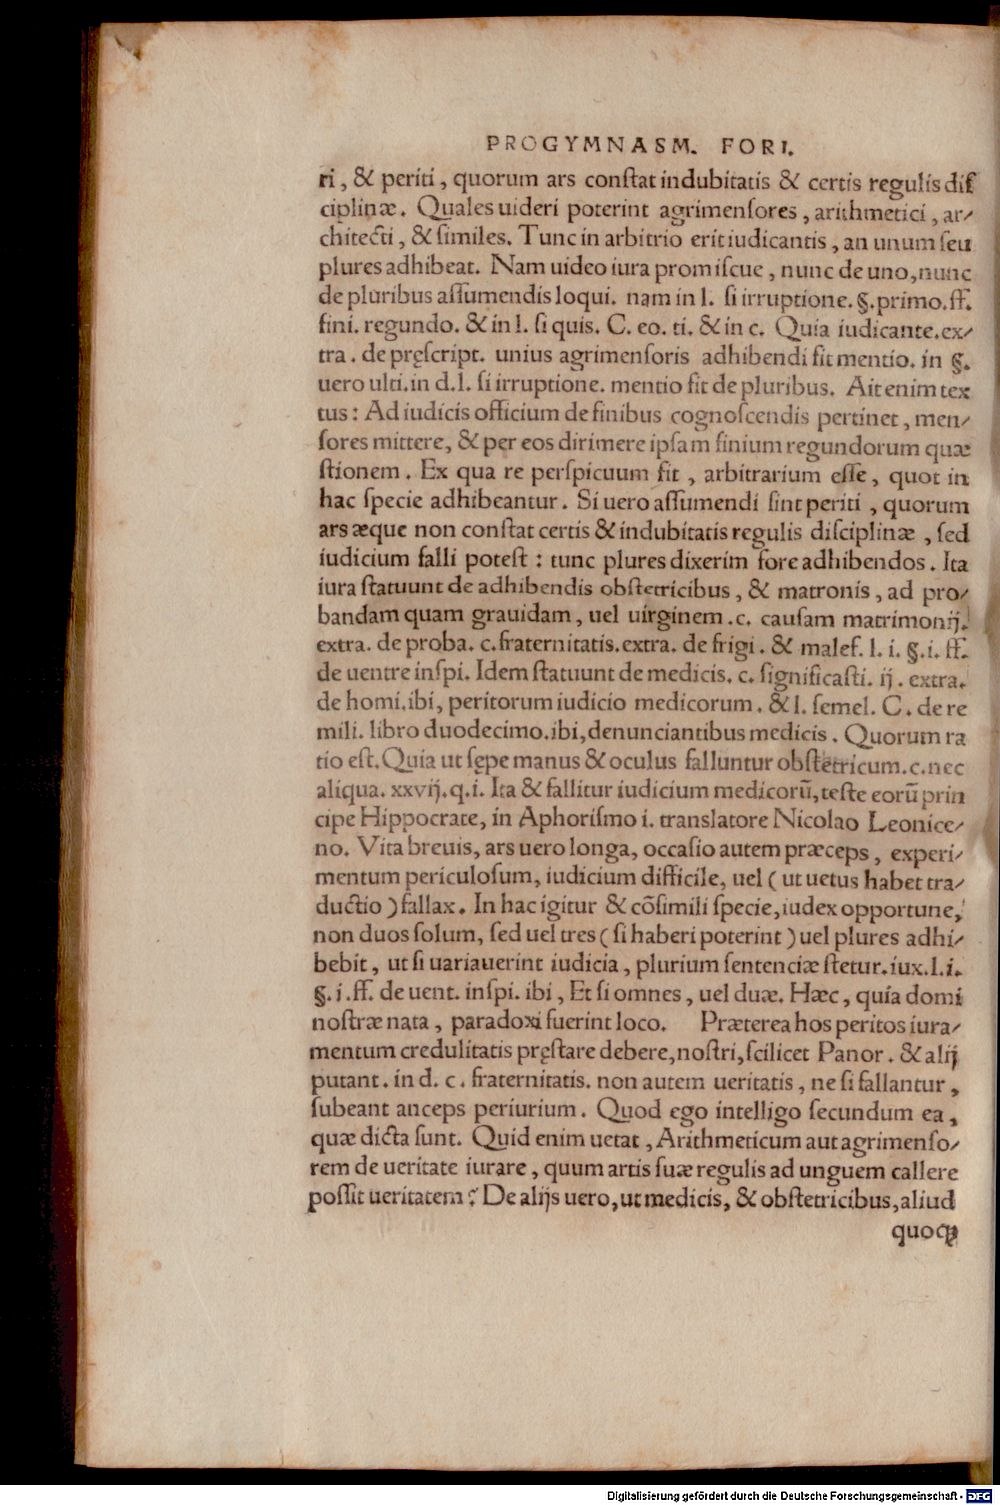 PROGYMNASM. FORI.
ri, & periti, quorum ars conſtat indubitatis & certis regulis diſ
ciplinæ. Quales uideri poterint agrimenſores, arithmetici, ar⸗
chitecti, & ſimiles. Tunc in arbitrio erit iudicantis, an unum ſeu
plures adhibeat. Nam uideo iura promiſcue, nunc de uno, nunc
de pluribus aſſumendis loqui. nam in l. ſi irruptione. §. primo. ff.
fini. regundo. & in l. ſi quis. C. eo. ti. & in c. Quia iudicante. ex⸗
tra. de pręſcript. unius agrimenſoris adhibendi fit mentio. in §.
uero ulti. in d. l. ſi irruptione. mentio fit de pluribus. Ait enim tex
tus: Ad iudicis officium de finibus cognoſcendis pertinet, men⸗
ſores mittere, & per eos dirimere ipſam finium regundorum quæ
ſtionem. Ex qua re perſpicuum fit, arbitrarium eſſe, quot in
hac ſpecie adhibeantur. Si uero aſſumendi ſint periti, quorum
ars æque non conſtat certis & indubitatis regulis diſciplinæ, ſed
iudicium falli poteſt: tunc plures dixerim fore adhibendos. Ita
iura ſtatuunt de adhibendis obſtetricibus, & matronis, ad pro⸗
bandam quam grauidam, uel uirginem. c. cauſam matrimonij.
extra. de proba. c. fraternitatis. extra. de frigi. & malef. l. i. §. i. ff.
de uentre inſpi. Idem ſtatuunt de medicis. c. ſignificaſti. ij. extra.
de homi. ibi, peritorum iudicio medicorum. & l. ſemel. C. de re
mili. libro duodecimo. ibi, denunciantibus medicis. Quorum ra
tio eſt. Quia ut ſępe manus & oculus falluntur obſtetricum. c. nec
aliqua. xxvij. q. i. Ita & fallitur iudicium medicorũ, teſte eorũ prin
cipe Hippocrate, in Aphoriſmo i. translatore Nicolao Leonice⸗
no. Vita breuis, ars uero longa, occaſio autem præceps, experi⸗
mentum periculoſum, iudicium difficile, uel (ut uetus habet tra⸗
ductio) fallax. In hac igitur & cõſimili ſpecie, iudex opportune,
non duos ſolum, ſed uel tres (ſi haberi poterint) uel plures adhi⸗
bebit, ut ſi uariauerint iudicia, plurium ſentenciæ ſtetur. iux. l. i.
§. i. ff. de uent. inſpi. ibi, Et ſi omnes, uel duæ. Hæc, quia domi
noſtræ nata, paradoxi fuerint loco. Præterea hos peritos iura⸗
mentum credulitatis pręſtare debere, noſtri, ſcilicet Panor. & alij
putant. in d. c. fraternitatis. non autem ueritatis, ne ſi fallantur,
ſubeant anceps periurium. Quod ego intelligo ſecundum ea,
quæ dicta ſunt. Quid enim uetat, Arithmeticum aut agrimenſo⸗
rem de ueritate iurare, quum artis ſuæ regulis ad unguem callere
poſſit ueritatem? De alijs uero, ut medicis, & obſtetricibus, aliud
quoqꝫ
Digitalisierung gefördert durch die Deutsche Forschungsgemeinschaft - DFG